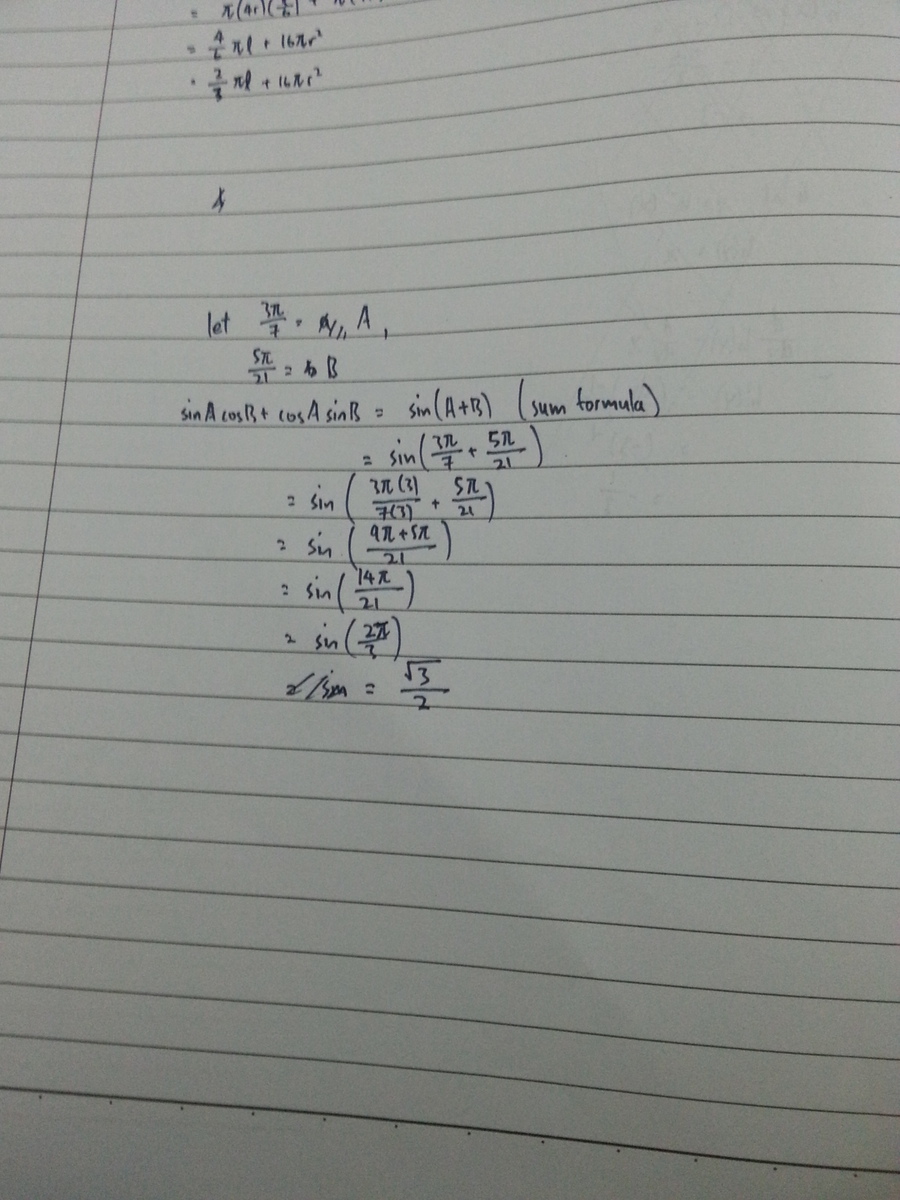 = π(4r)(
= 4/6 πl + 16πr²
= 2/3 πl + 16πr²
let 3π/7 = A,
5π/21 = B
sinA cosB + cosA sinB = sin(A+B) (sum formula)
= sin(3π/7 + 5π/21)
= sin(3π(3)/7(3) + 5π/21)
= sin(9π+5π/21)
= sin(14π/21)
= sin(2π/3)
= √3/2